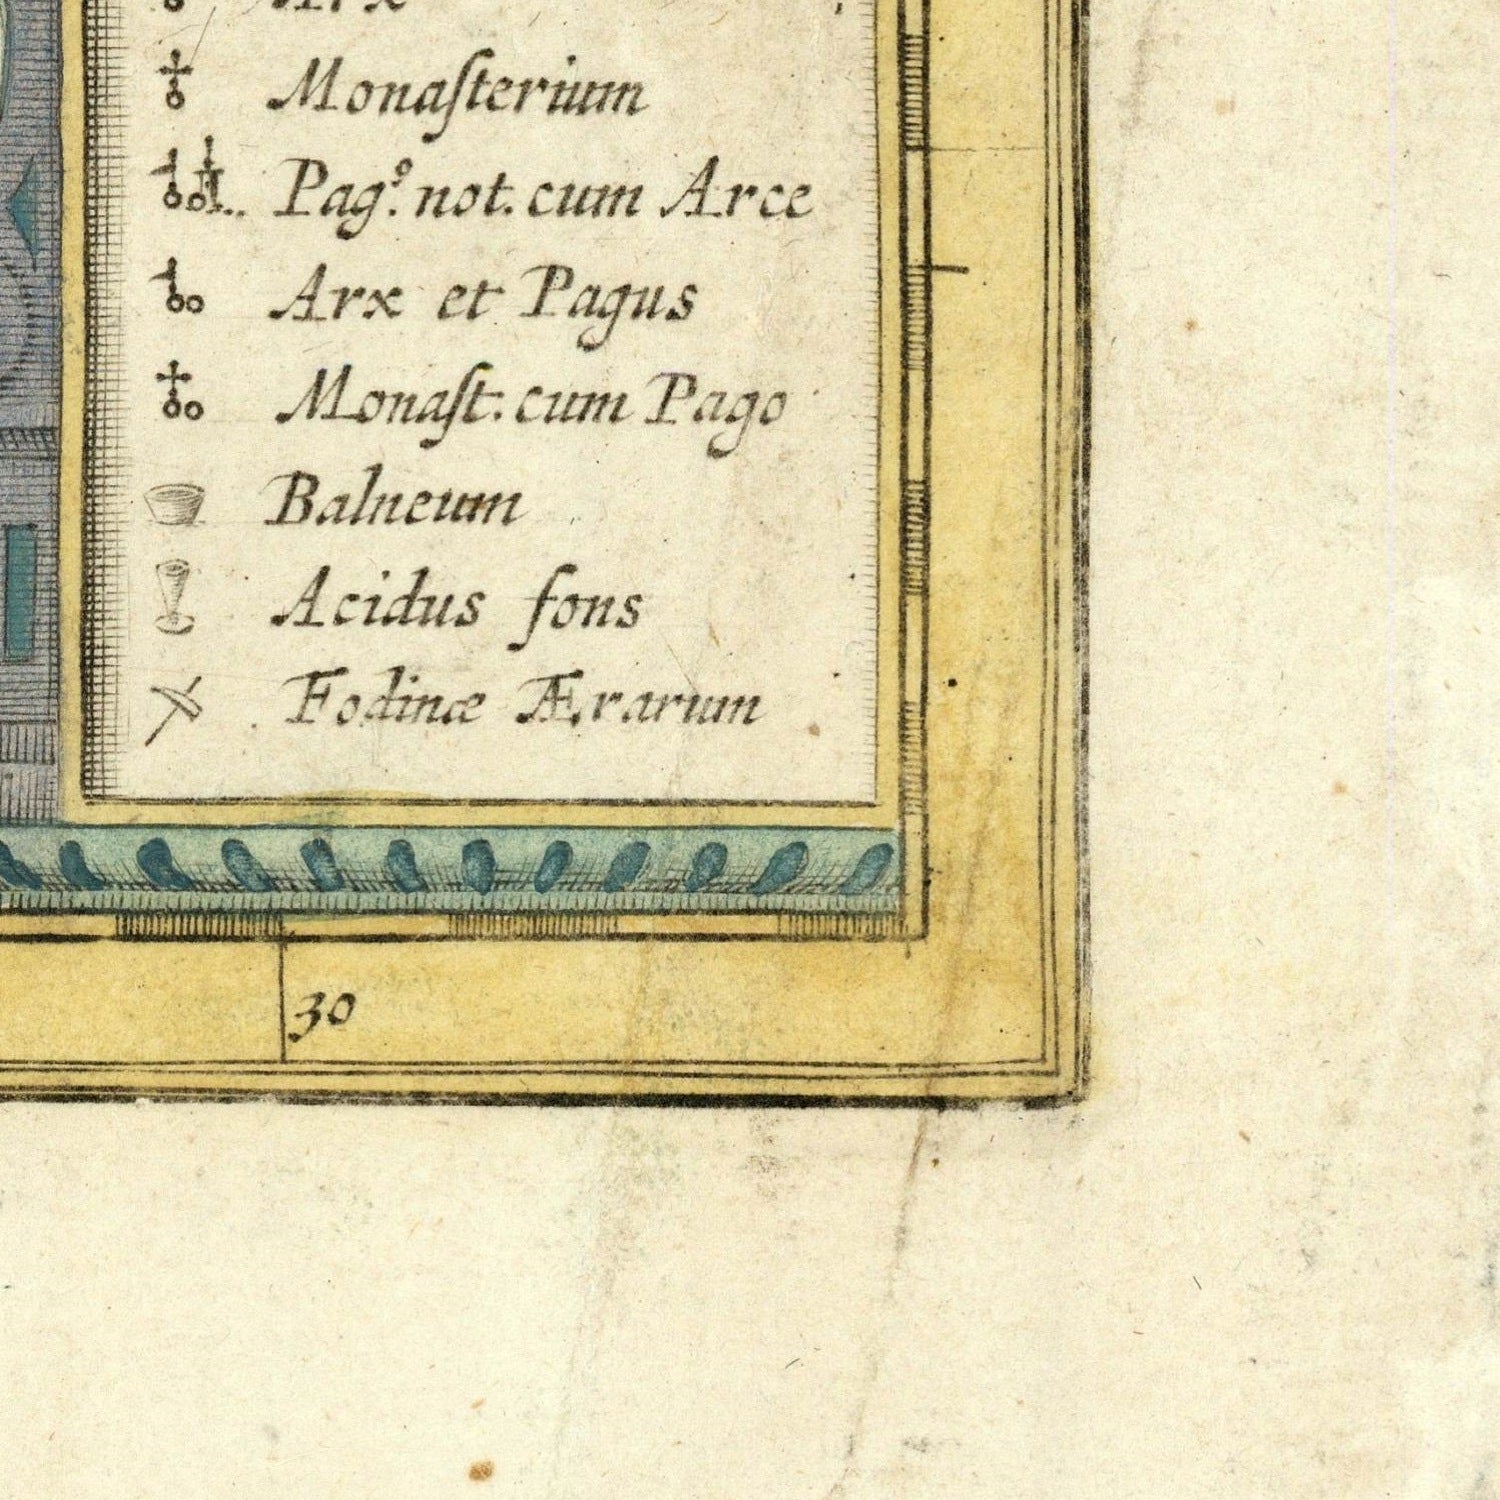 Arx
Monaſterium
Pag.º not. cum Arce
Arx et Pagus
Monaſt. cum Pago
Balneum
Acidus fons
Fodinæ Ærarum
30